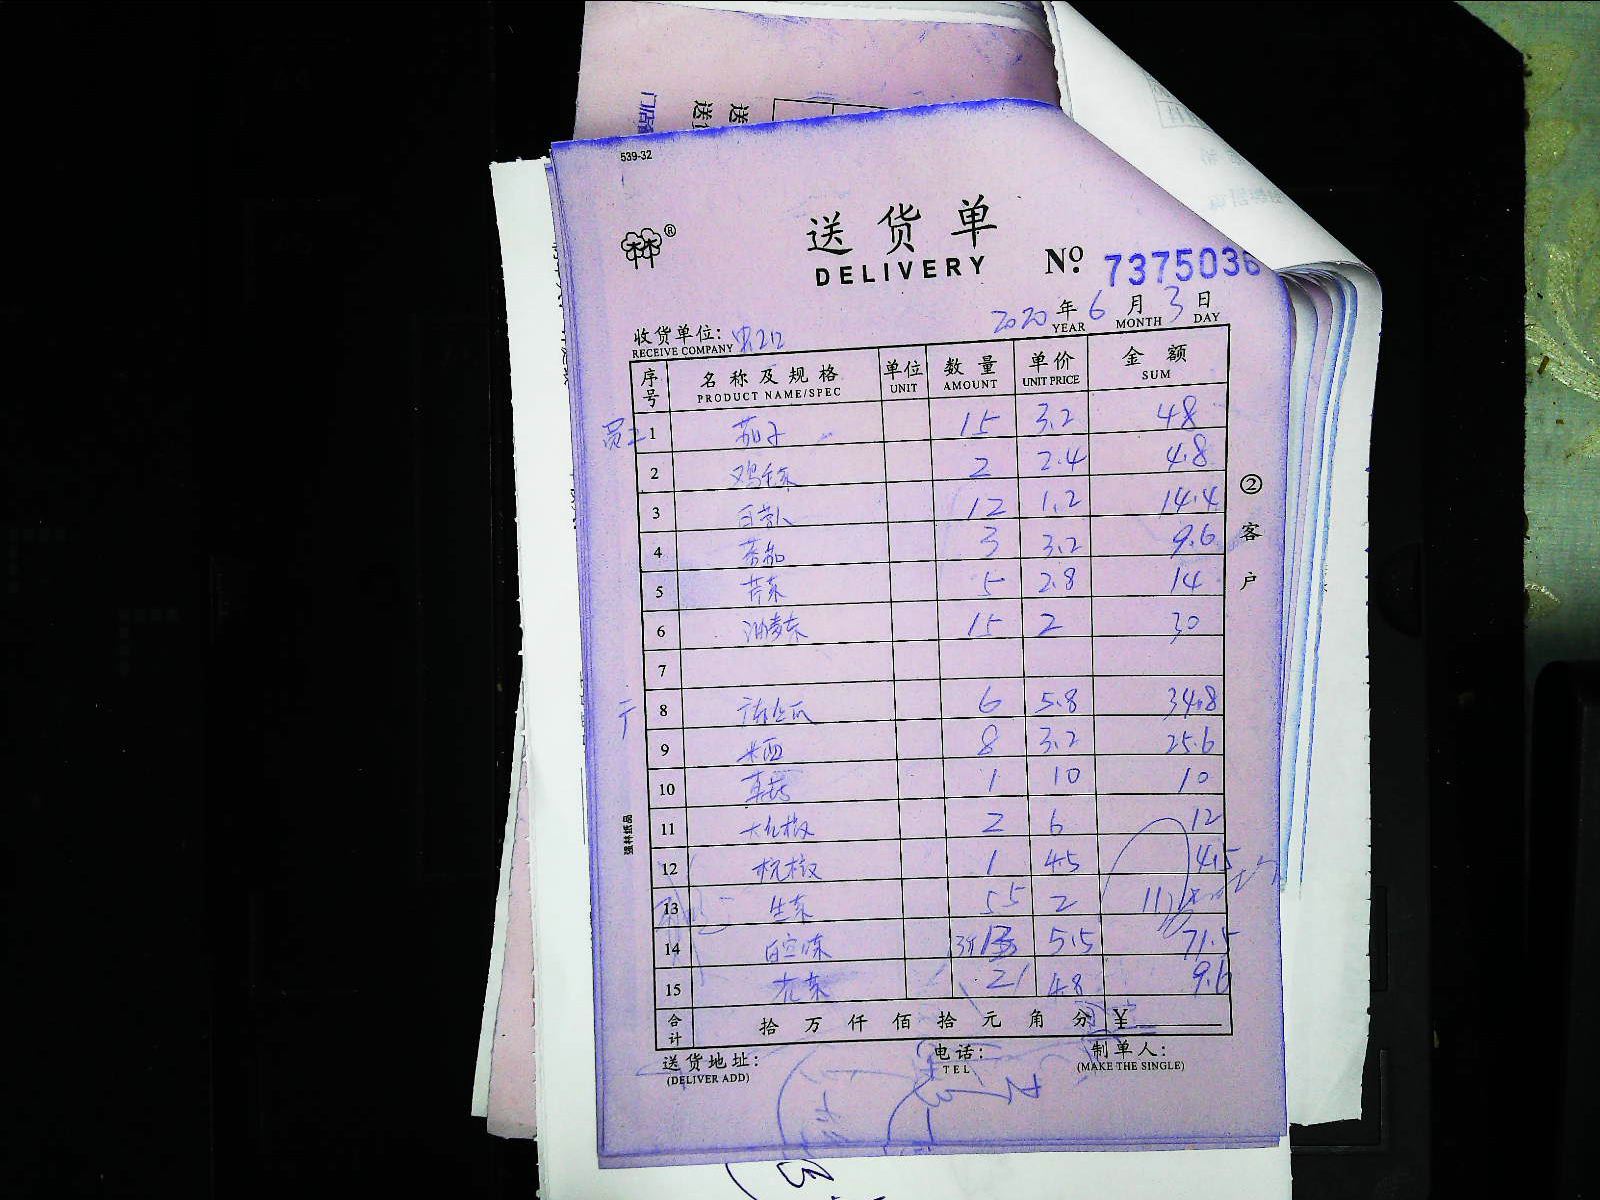 539-32
送货单
DELIVERY
Nº 7375036
2020年6月3日
YEAR MONTH DAY
收货单位:
RECEIVE COMPANY
序号 名称及规格 单位 数量 单价 金额
PRODUCT NAME/SPEC UNIT AMOUNT UNIT PRICE SUM
员工 1 茄子 15 3.2 48
2 鸡毛菜 2 2.4 4.8
3 白萝卜 12 1.2 14.4
4 番茄 3 3.2 9.6
5 芹菜 5 2.8 14
6 油麦菜 15 2 30
7
8 6 5.8 34.8
9 米西 8 3.2 25.6
10 1 10 10
11 大红椒 2 6 12
12 杭椒 1 4.5 4.5
13 生菜 5.5 2 11
14 5.5 71.5
15 2 4.8 9.6
合计 拾万仟佰拾元角分 ¥
送货地址: 电话: 制单人:
(DELIVER ADD) TEL (MAKE THE SINGLE)
② 客户
强林纸品